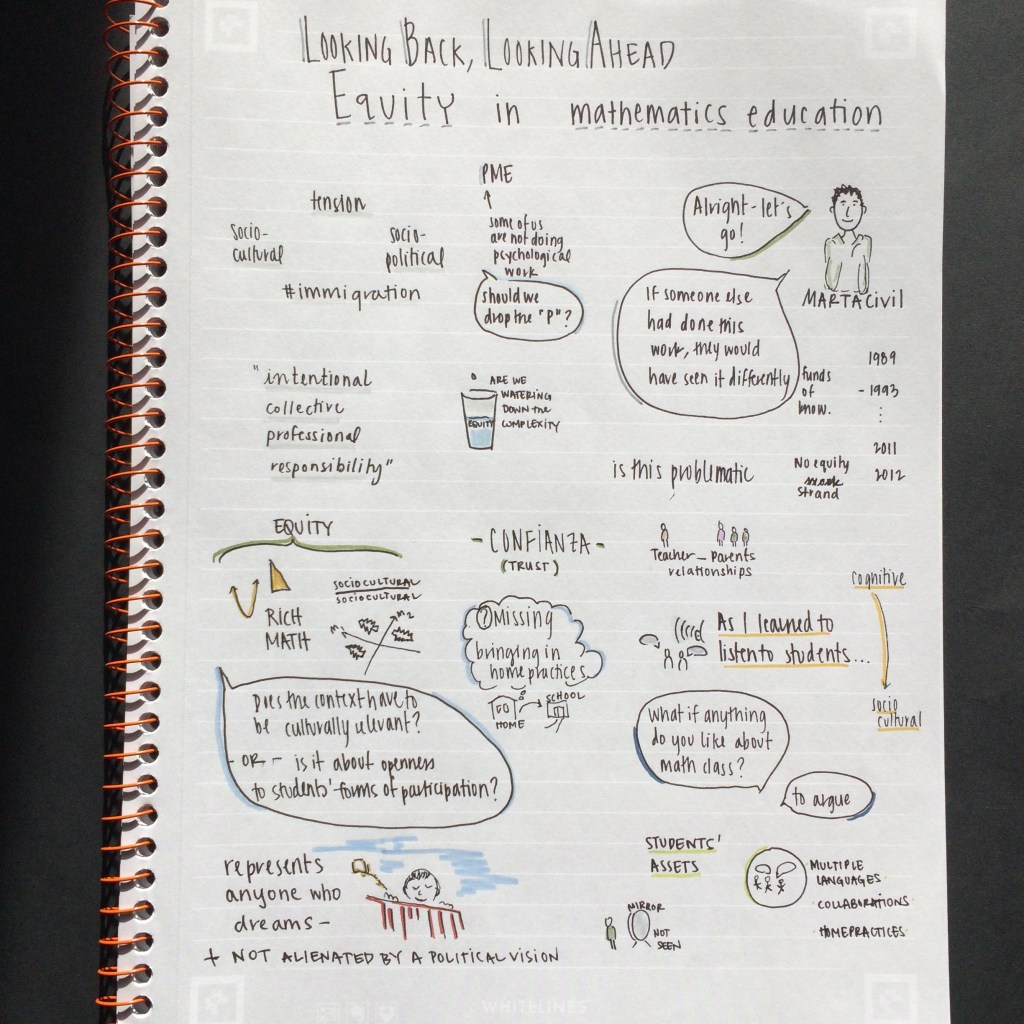 LOOKING BACK, LOOKING AHEAD
EQUITY in mathematics education
tension
socio-
cultural
socio-
political
#immigration
PME
some of us
are not doing
psychological
work
should we
drop the "P"?
Alright - let's
go!
MARTA CIVIL
If someone else
had done this
work, they would
have seen it differently
funds
of
know.
1989
- 1993
2011
2012
No equity
strand
is this problematic
"intentional
collective
professional
responsibility"
EQUITY
ARE WE
WATERING
DOWN THE
COMPLEXITY
EQUITY
RICH
MATH
SOCIOCULTURAL
SOCIOCULTURAL
- CONFIANZA -
(TRUST)
Teacher - Parents
relationships
cognitive
socio
cultural
? Missing
bringing in
home practices
HOME
SCHOOL
As I learned to
listen to students...
Does the context have to
be culturally relevant?
- OR - is it about openness
to students' forms of participation?
what if anything
do you like about
math class?
to argue
represents
anyone who
dreams -
+ NOT ALIENATED BY A POLITICAL VISION
STUDENTS'
ASSETS
MIRROR
NOT
SEEN
MULTIPLE
LANGUAGES
COLLABORATIONS
HOMEPRACTICES
WHITELINES